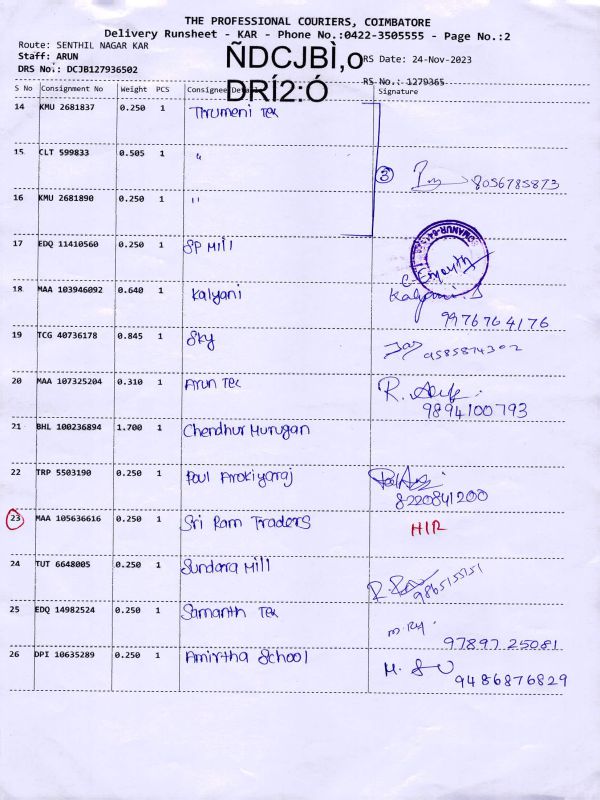 THE PROFESSIONAL COURIERS, COIMBATORE
Delivery Runsheet - KAR - Phone No.:0422-3505555 - Page No.:2
Route: SENTHIL NAGAR KAR
Staff: ARUN
ÑDCJBÌ,o
RS Date: 24-Nov-2023
DRS No.: DCJB127936502
DRÍ2:Ó
RS No.: 1279365
S No Consignment No Weight PCS Consignee Details Signature
14 KMU 2681837 0.250 1 Thrumeni Tex
15 CLT 599833 0.505 1 "
3 8056785873
16 KMU 2681890 0.250 1 "
17 EDQ 11410560 0.250 1 SP Mill
18 MAA 103946092 0.640 1 Kalyani Kalyani.S
9976764176
19 TCG 40736178 0.845 1 Sky 9585874302
20 MAA 107325204 0.310 1 Arun Tex R.
9894100793
21 BHL 100236894 1.700 1 Chendhur Murugan
22 TRP 5503190 0.250 1 Paul Arokiyaraj
8220841200
23 MAA 105636616 0.250 1 Sri Ram Traders HIR
24 TUT 6648005 0.250 1 Sundara Mill
R. 9865155151
25 EDQ 14982524 0.250 1 Samanth Tex
97897 25081
26 DPI 10635289 0.250 1 Amirtha School M.
9486876829